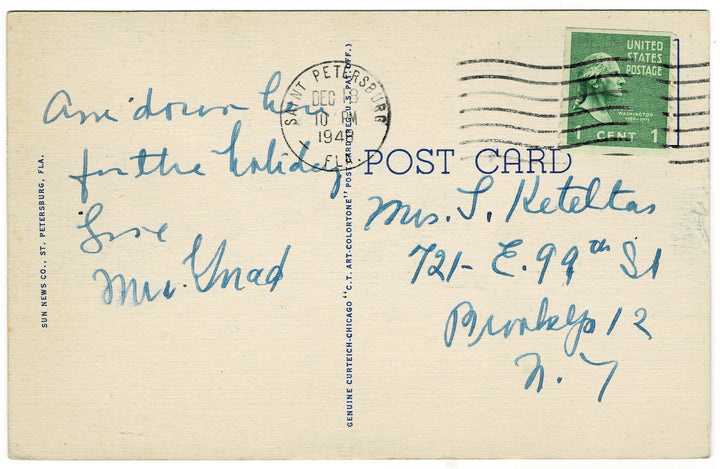 Am down here
for the holiday
Love
Mrs.
SUN NEWS CO., ST. PETERSBURG, FLA.
GENUINE CURTEICH-CHICAGO "C.T. ART-COLORTONE" POST CARD (REG. U.S. PAT. OFF.)
SAINT PETERSBURG
DEC
10 PM
FLA.
UNITED
STATES
POSTAGE
WASHINGTON
1 CENT 1
POST CARD
Mrs. S. Keteltas
721- E. 99th St
Brooklyn 12
N. Y